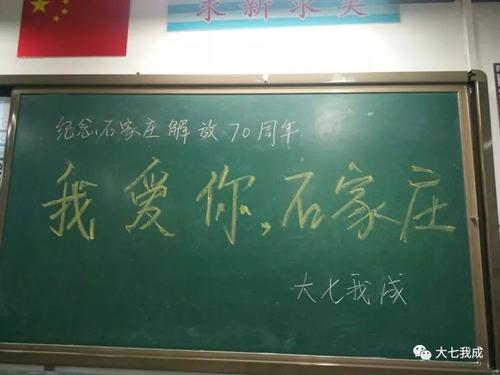 求新求美
纪念石家庄解放70周年
我爱你,石家庄
大七我成
大七我成